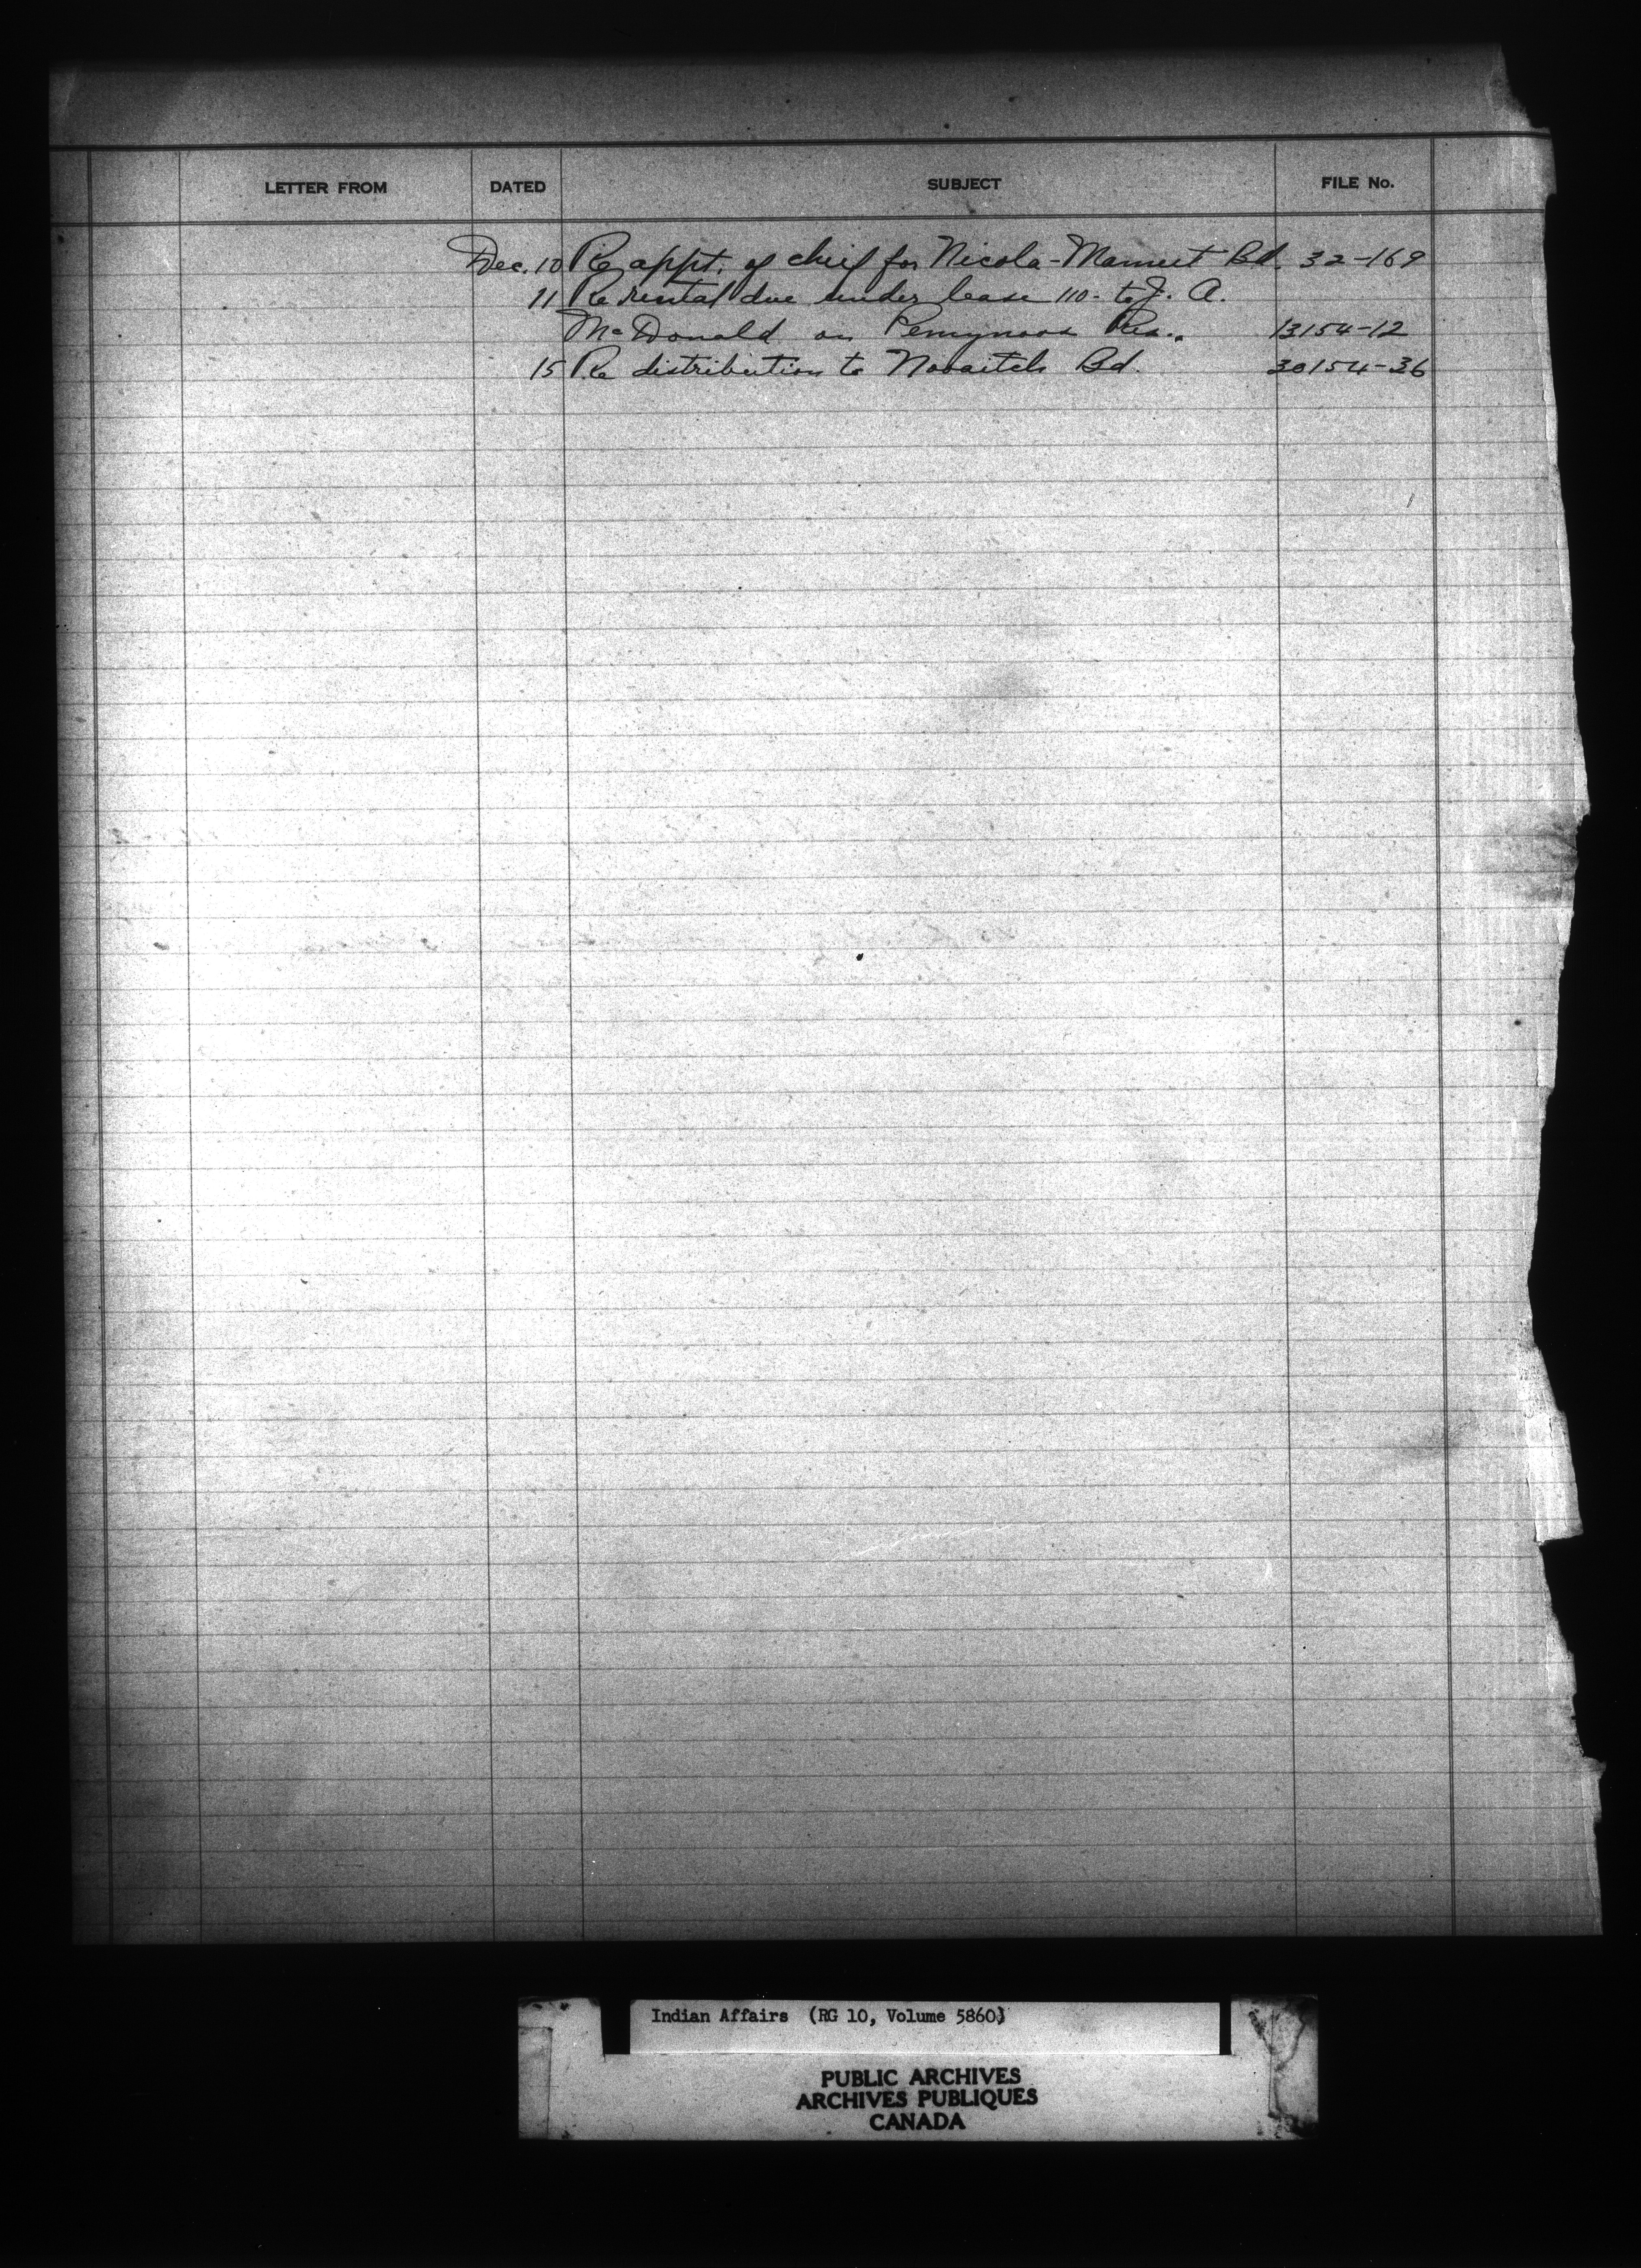 LETTER FROM DATED SUBJECT FILE No.
Dec. 10 Re appt. of chief for Nicola-Mameet Bd. 32-169
11 Re rental due under lease 110- to J. A.
McDonald on Pemynoos Res. 13154-12
15 Re distribution to Nooaitch Bd. 30154-36
Indian Affairs (RG 10, Volume 5860)
PUBLIC ARCHIVES
ARCHIVES PUBLIQUES
CANADA